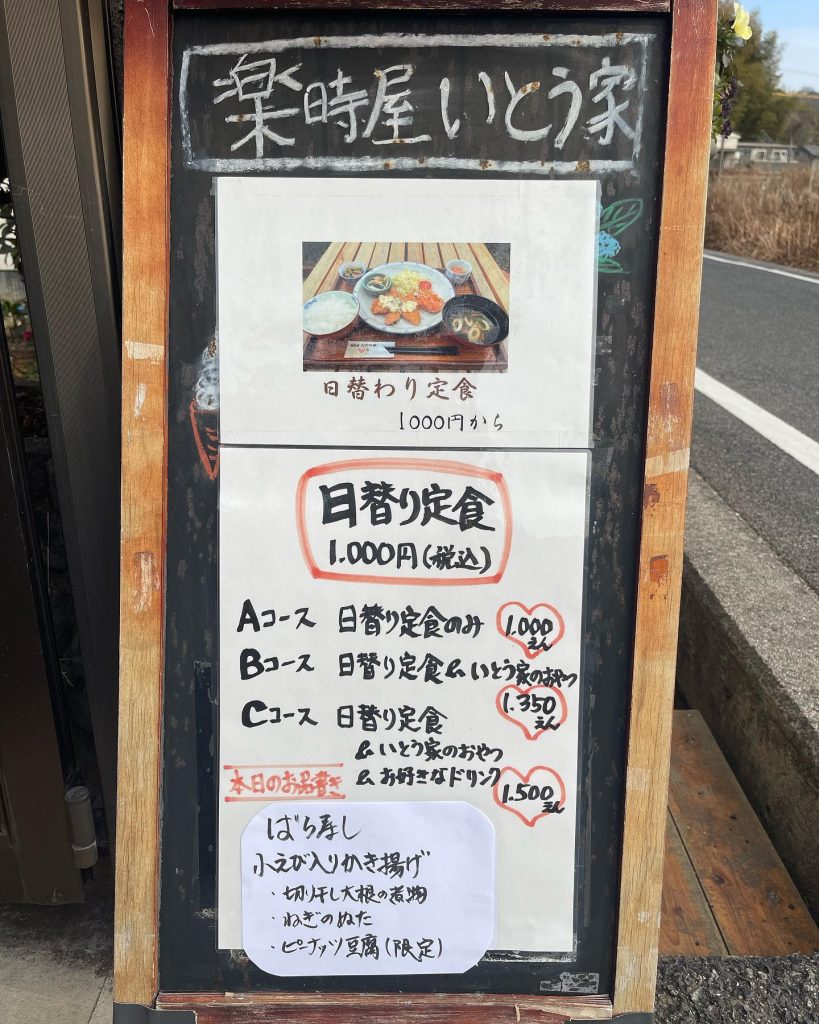 楽時屋 いとう家
日替わり定食
1000円から
日替り定食
1.000円(税込)
Aコース 日替り定食のみ 1.000えん
Bコース 日替り定食&いとう家のおやつ
1.350えん
Cコース 日替り定食
&いとう家のおやつ
&お好きなドリンク 1.500えん
本日のお品書き
ばら寿し
小えび入りかき揚げ
・切り干し大根の煮物
・ねぎのぬた
・ピーナッツ豆腐(限定)